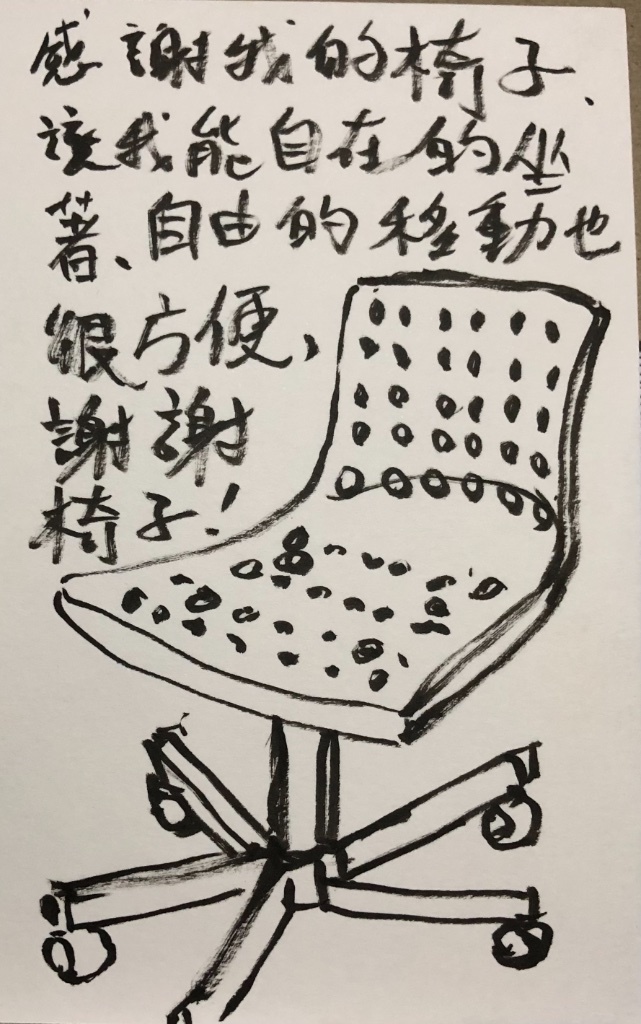 感謝我的椅子、
讓我能自在的坐
著、自由的移動也
很方便，
謝謝
椅子！